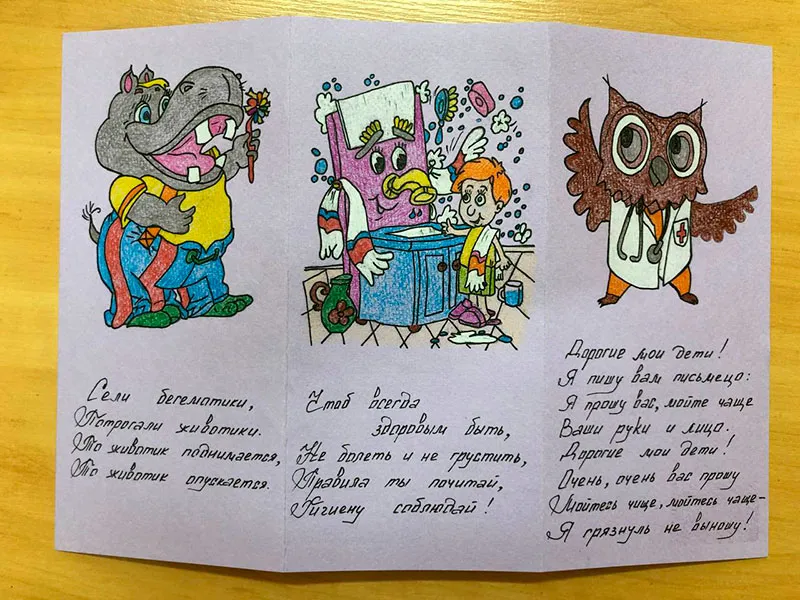 Сели бегемотики,
Потрогали животики.
То животик поднимается,
То животик опускается.
Чтоб всегда
здоровым быть,
Не болеть и не грустить,
Правила ты почитай,
Гигиену соблюдай!
Дорогие мои дети!
Я пишу вам письмецо:
Я прошу вас, мойте чаще
Ваши руки и лицо.
Дорогие мои дети!
Очень, очень вас прошу
Мойтесь чище, мойтесь чаще-
Я грязнуль не выношу!